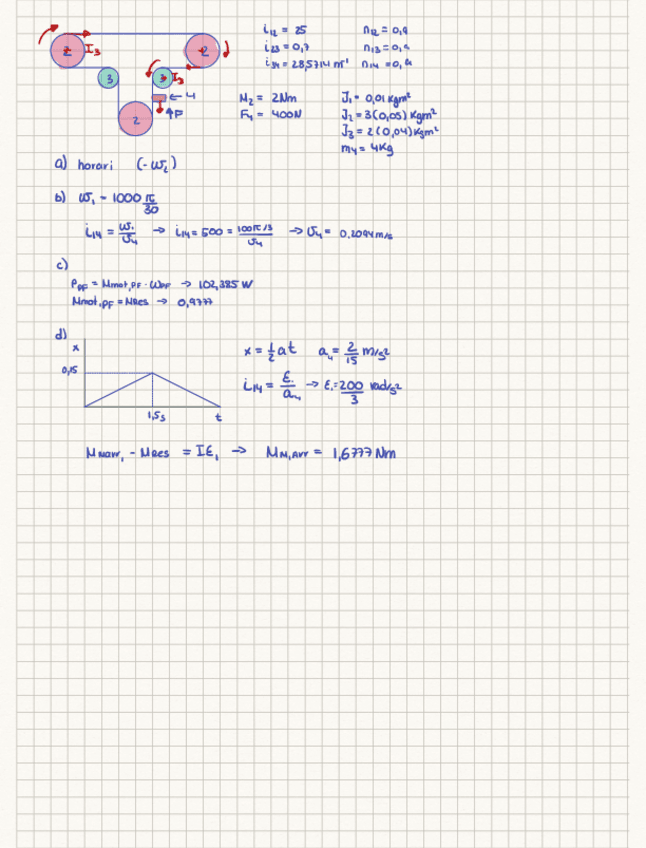 i₁₂ = 25 η₁₂ = 0,9
i₂₃ = 0,7
i₃₄ = 28,5714 m⁻¹
2 I₃ 2
3 3 I₃
← 4
↑F
2
M₂ = 2Nm
F₄ = 400N
J₁ = 0,01 Kgm²
J₂ = 3(0,05) Kgm²
J₃ = 2(0,04) Kgm²
m₄ = 4Kg
a) horari (-ω₂)
b) ω₁ = 1000 π/30
i₁₄ = ω₁/v₄ → i₁₄ = 500 = (100π/3)/v₄ → v₄ = 0,2094 m/s
c)
P_PF = Mmot,PF · ω_PF → 102,385 W
Mmot,PF = MRes → 0,9777
d)
x
0,15
1,5s t
x = ½ at a₄ = 2/15 m/s²
i₁₄ = ε₁/a₄ → ε₁ = 200/3 rad/s²
M_Marr₁ - MRes = Iε₁ → M_M,Arr = 1,6777 Nm